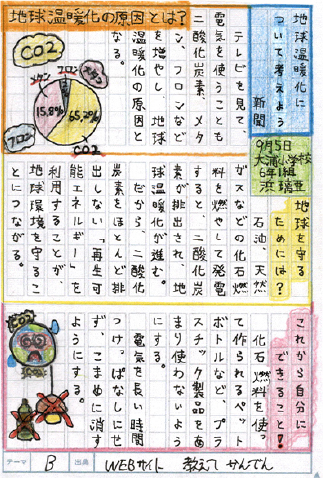 地球温暖化の原因とは?
地球温暖化に
ついて考えよう
新聞
9月5日
大浦小学校
6年1組
浜 瑞亜
テレビを見て、
電気を使うことも
二酸化炭素、メタ
ン、フロンなど
を増やし、地球
温暖化の原因と
なる。
CO2
メタン
フロン
メタン
15.8%
65.2%
フロン
CO2
地球を守る
ためには?
石油、天然
ガスなどの化石燃
料を燃やして発電
すると、二酸化炭
素が排出され、地
球温暖化が進む。
だから、二酸化
炭素をほとんど排
出しない「再生可
能エネルギー」を
利用することが、
地球環境を守るこ
とにつながる。
これから自分に
できること!
化石燃料を使っ
て作られるペット
ボトルなど、プラ
スチック製品をあ
まり使わないよう
にする。
電気を長い時間
つけっぱなしにせ
ず、こまめに消す
ようにする。
CO2
テーマ B 出典 WEBサイト 教えて かんでん